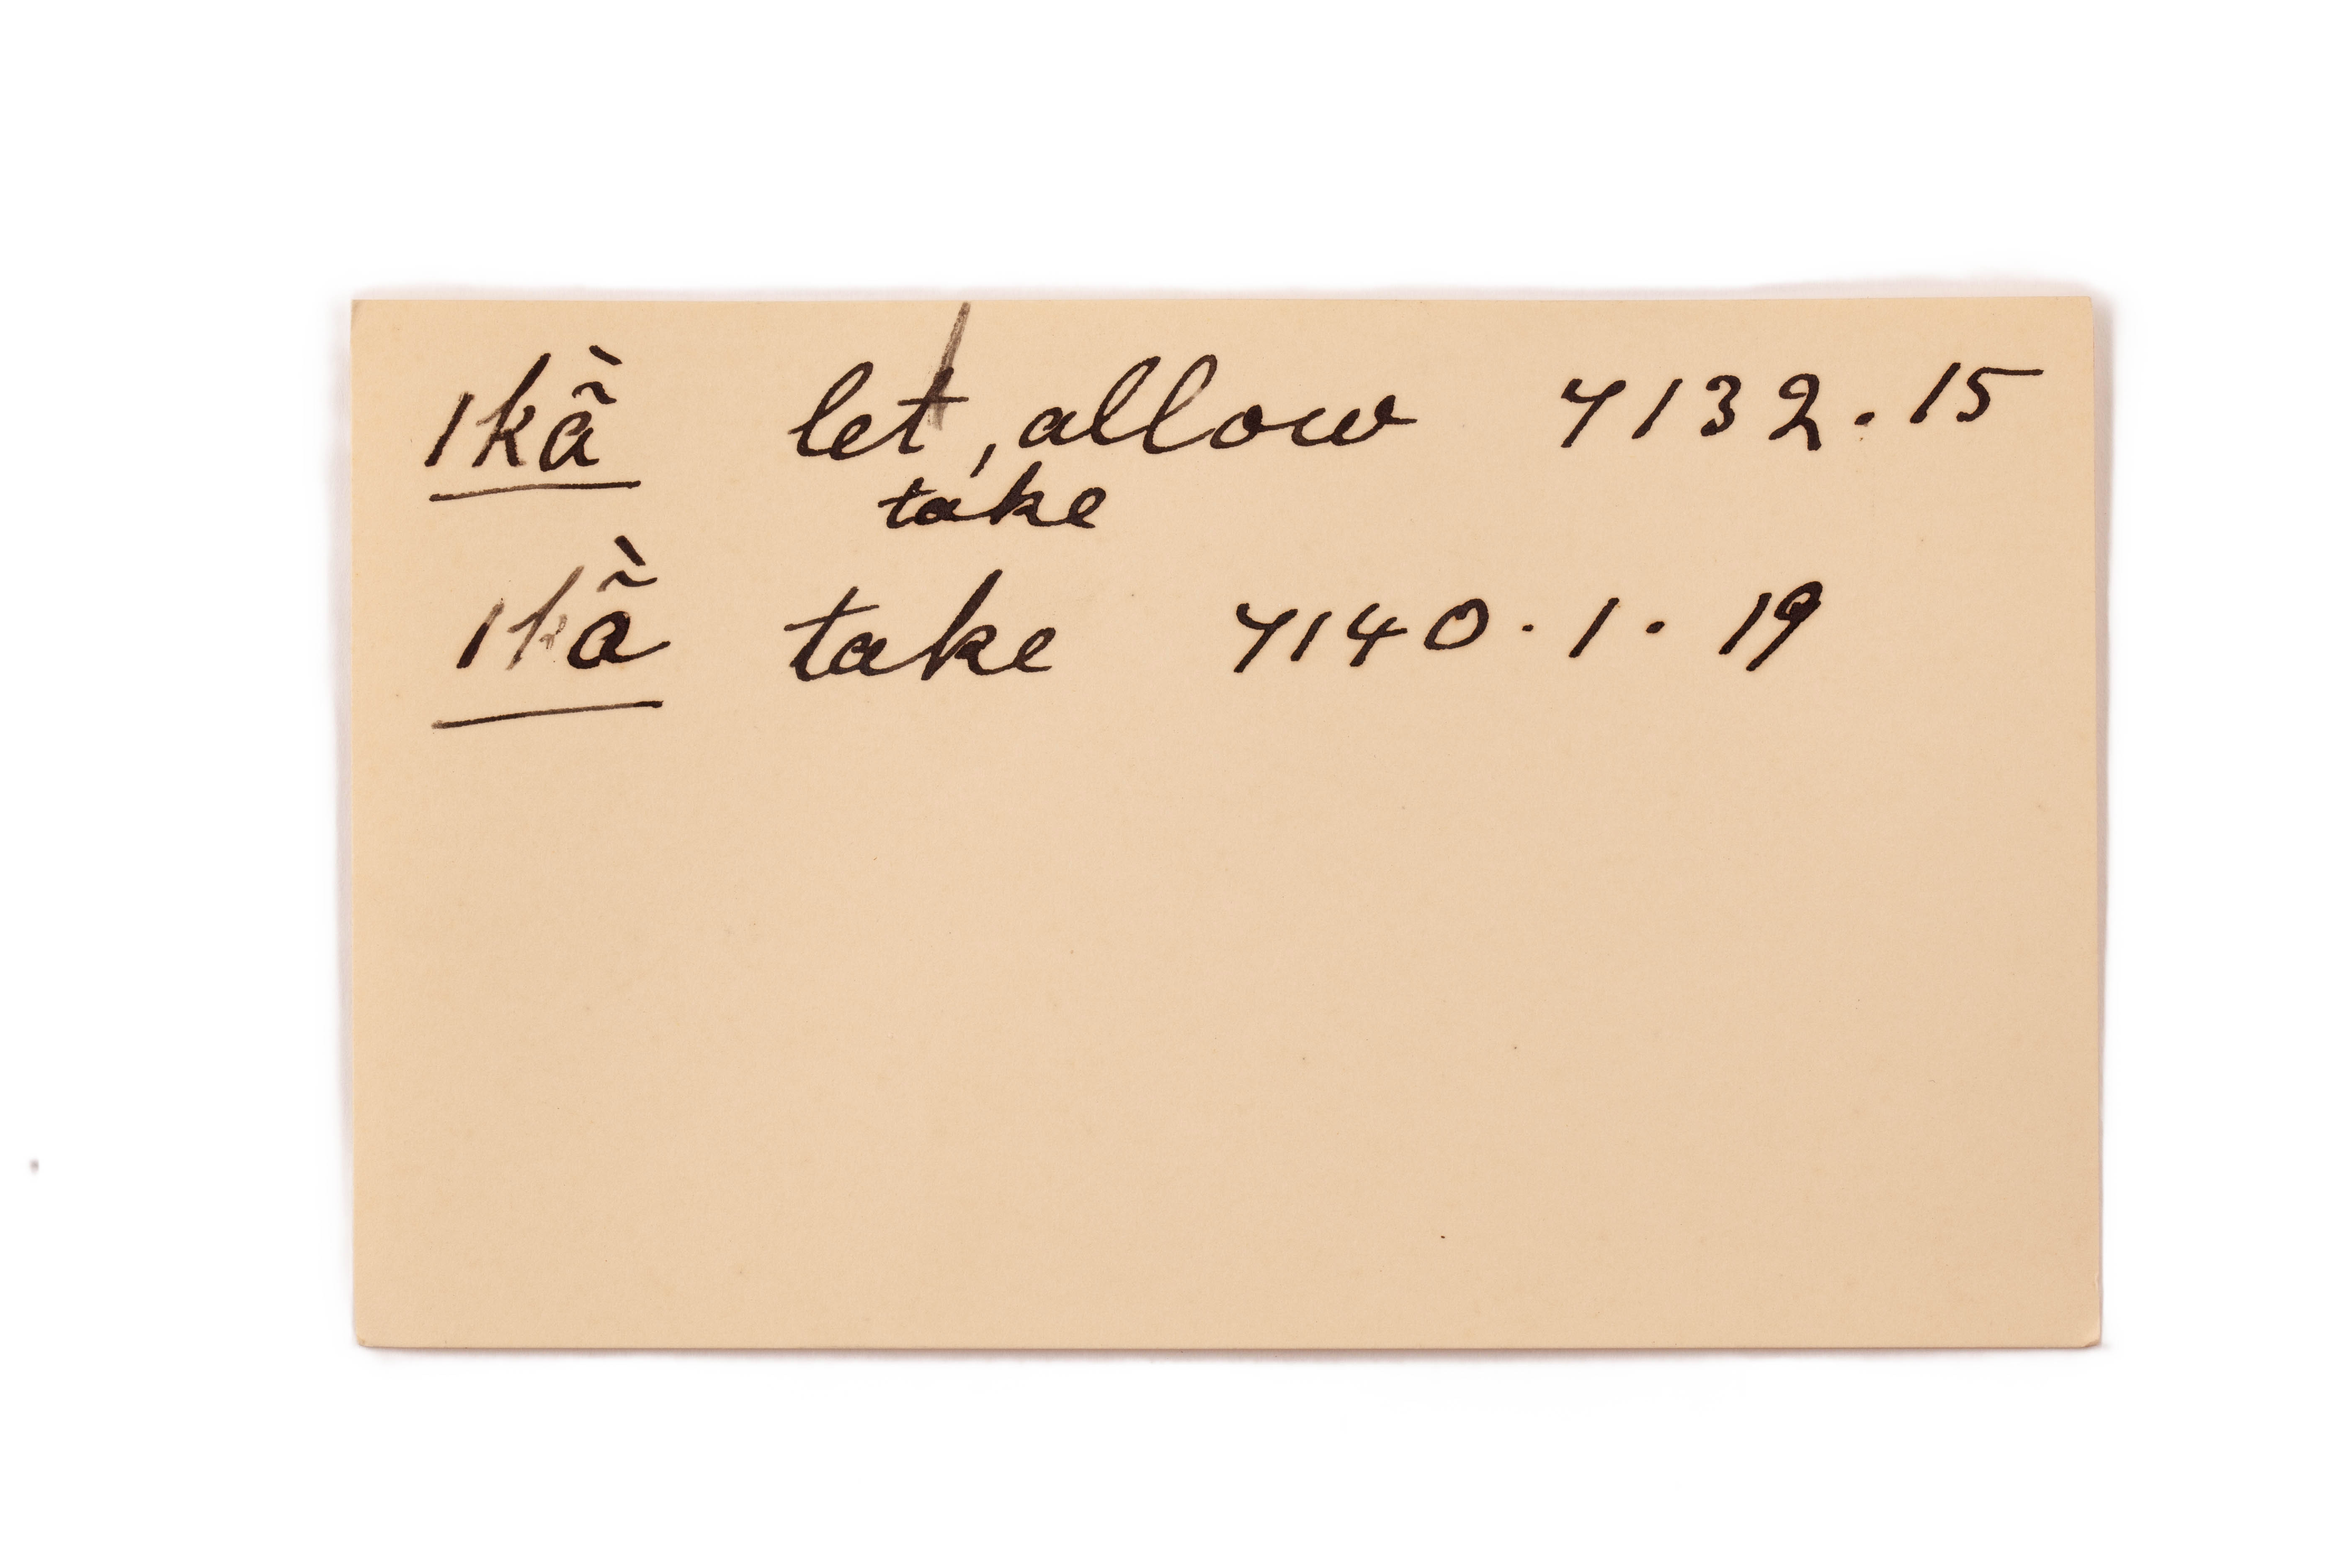 ıkã̀ let, allow 7132.15
take
ıkã̀ take 7140.1.19